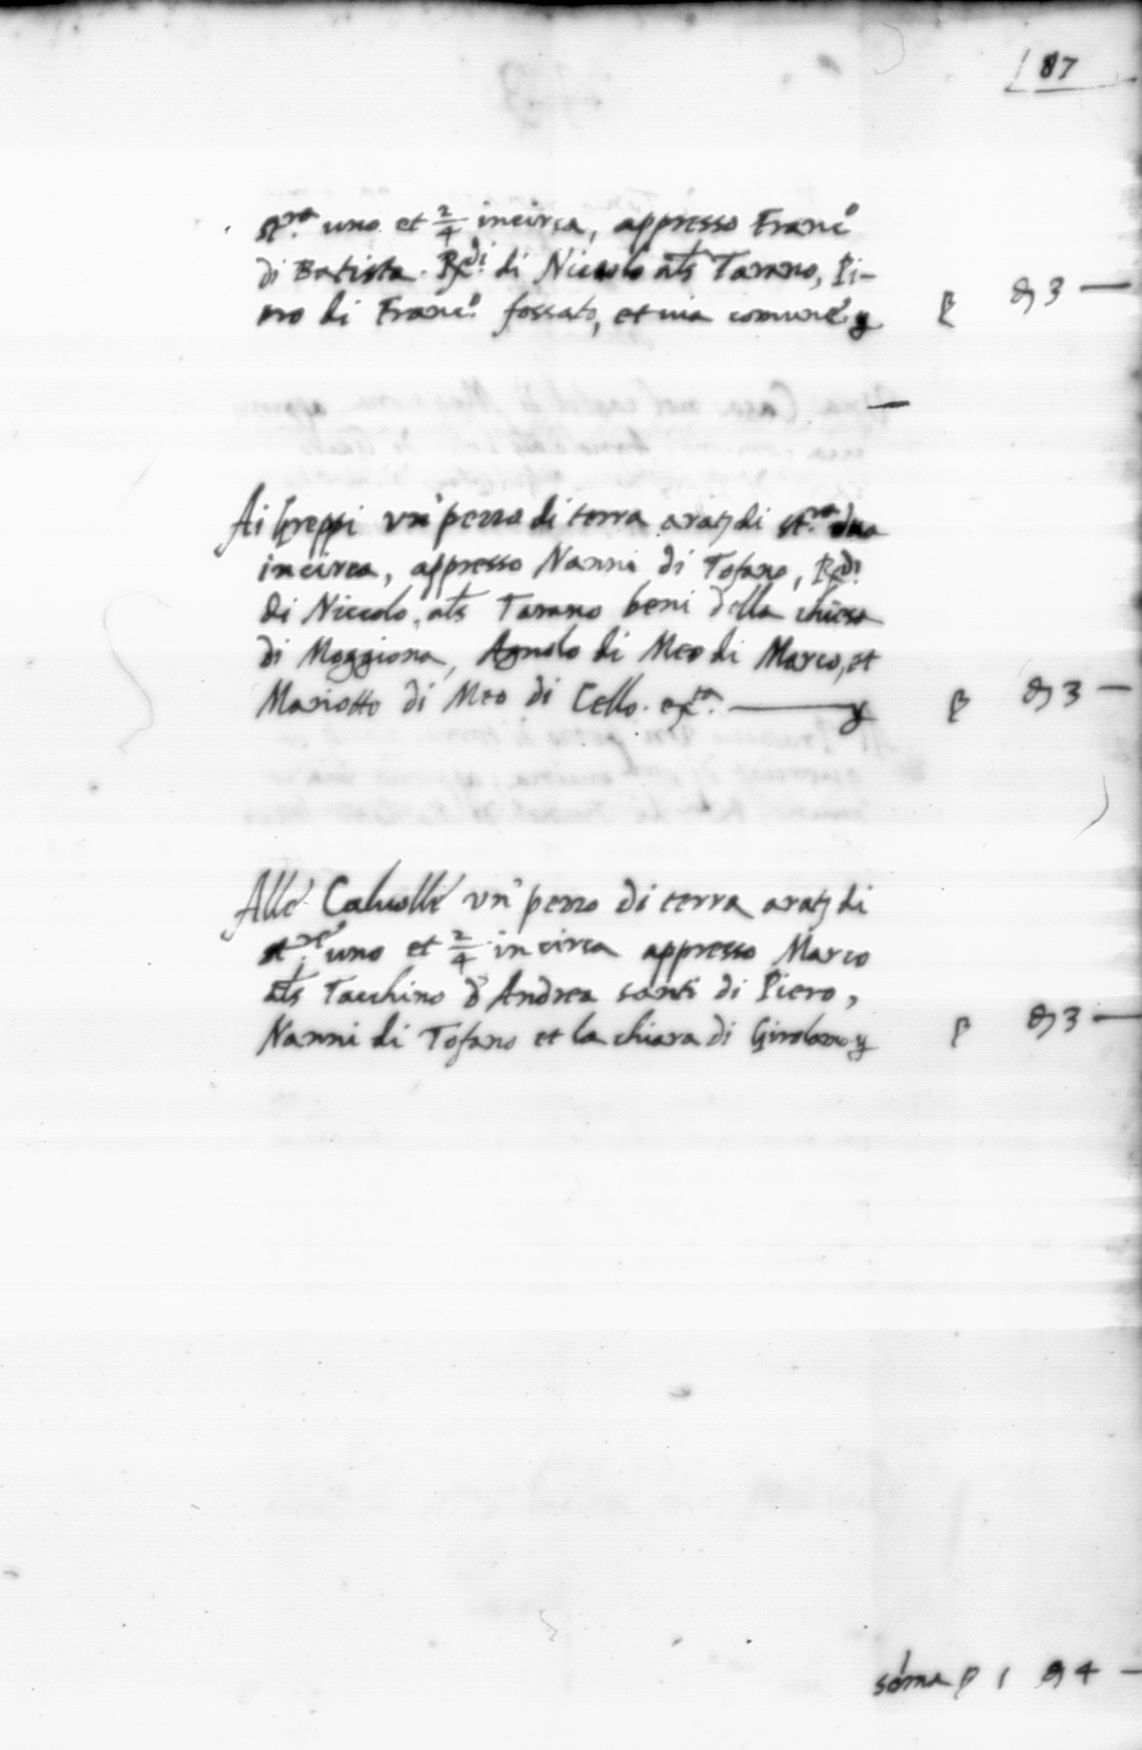 87
st.ra uno et 2/4 incirca, appresso Franc.o
di Batista. Rdi. di Niccolo als Tarano, Pi-
ero di Franc.o fossato, et uia comune
Ai Greppi vn' pezzo di terra arat. di st.ra dua
incirca, appresso Nanni di Tofano, Rdi.
di Niccolo, als Tarano beni della chiesa
di Moggiona, Agnolo di Meo di Marco, et
Mariotto di Meo di Cello.
Alle vn' pezzo di terra arat. di
uno et 2/4 incirca appresso Marco
als Tacchino d'Andrea santi di Piero,
Nanni di Tofano et la chiara di Girolamo
3 —
3 —
3 —
soma 1 4 —